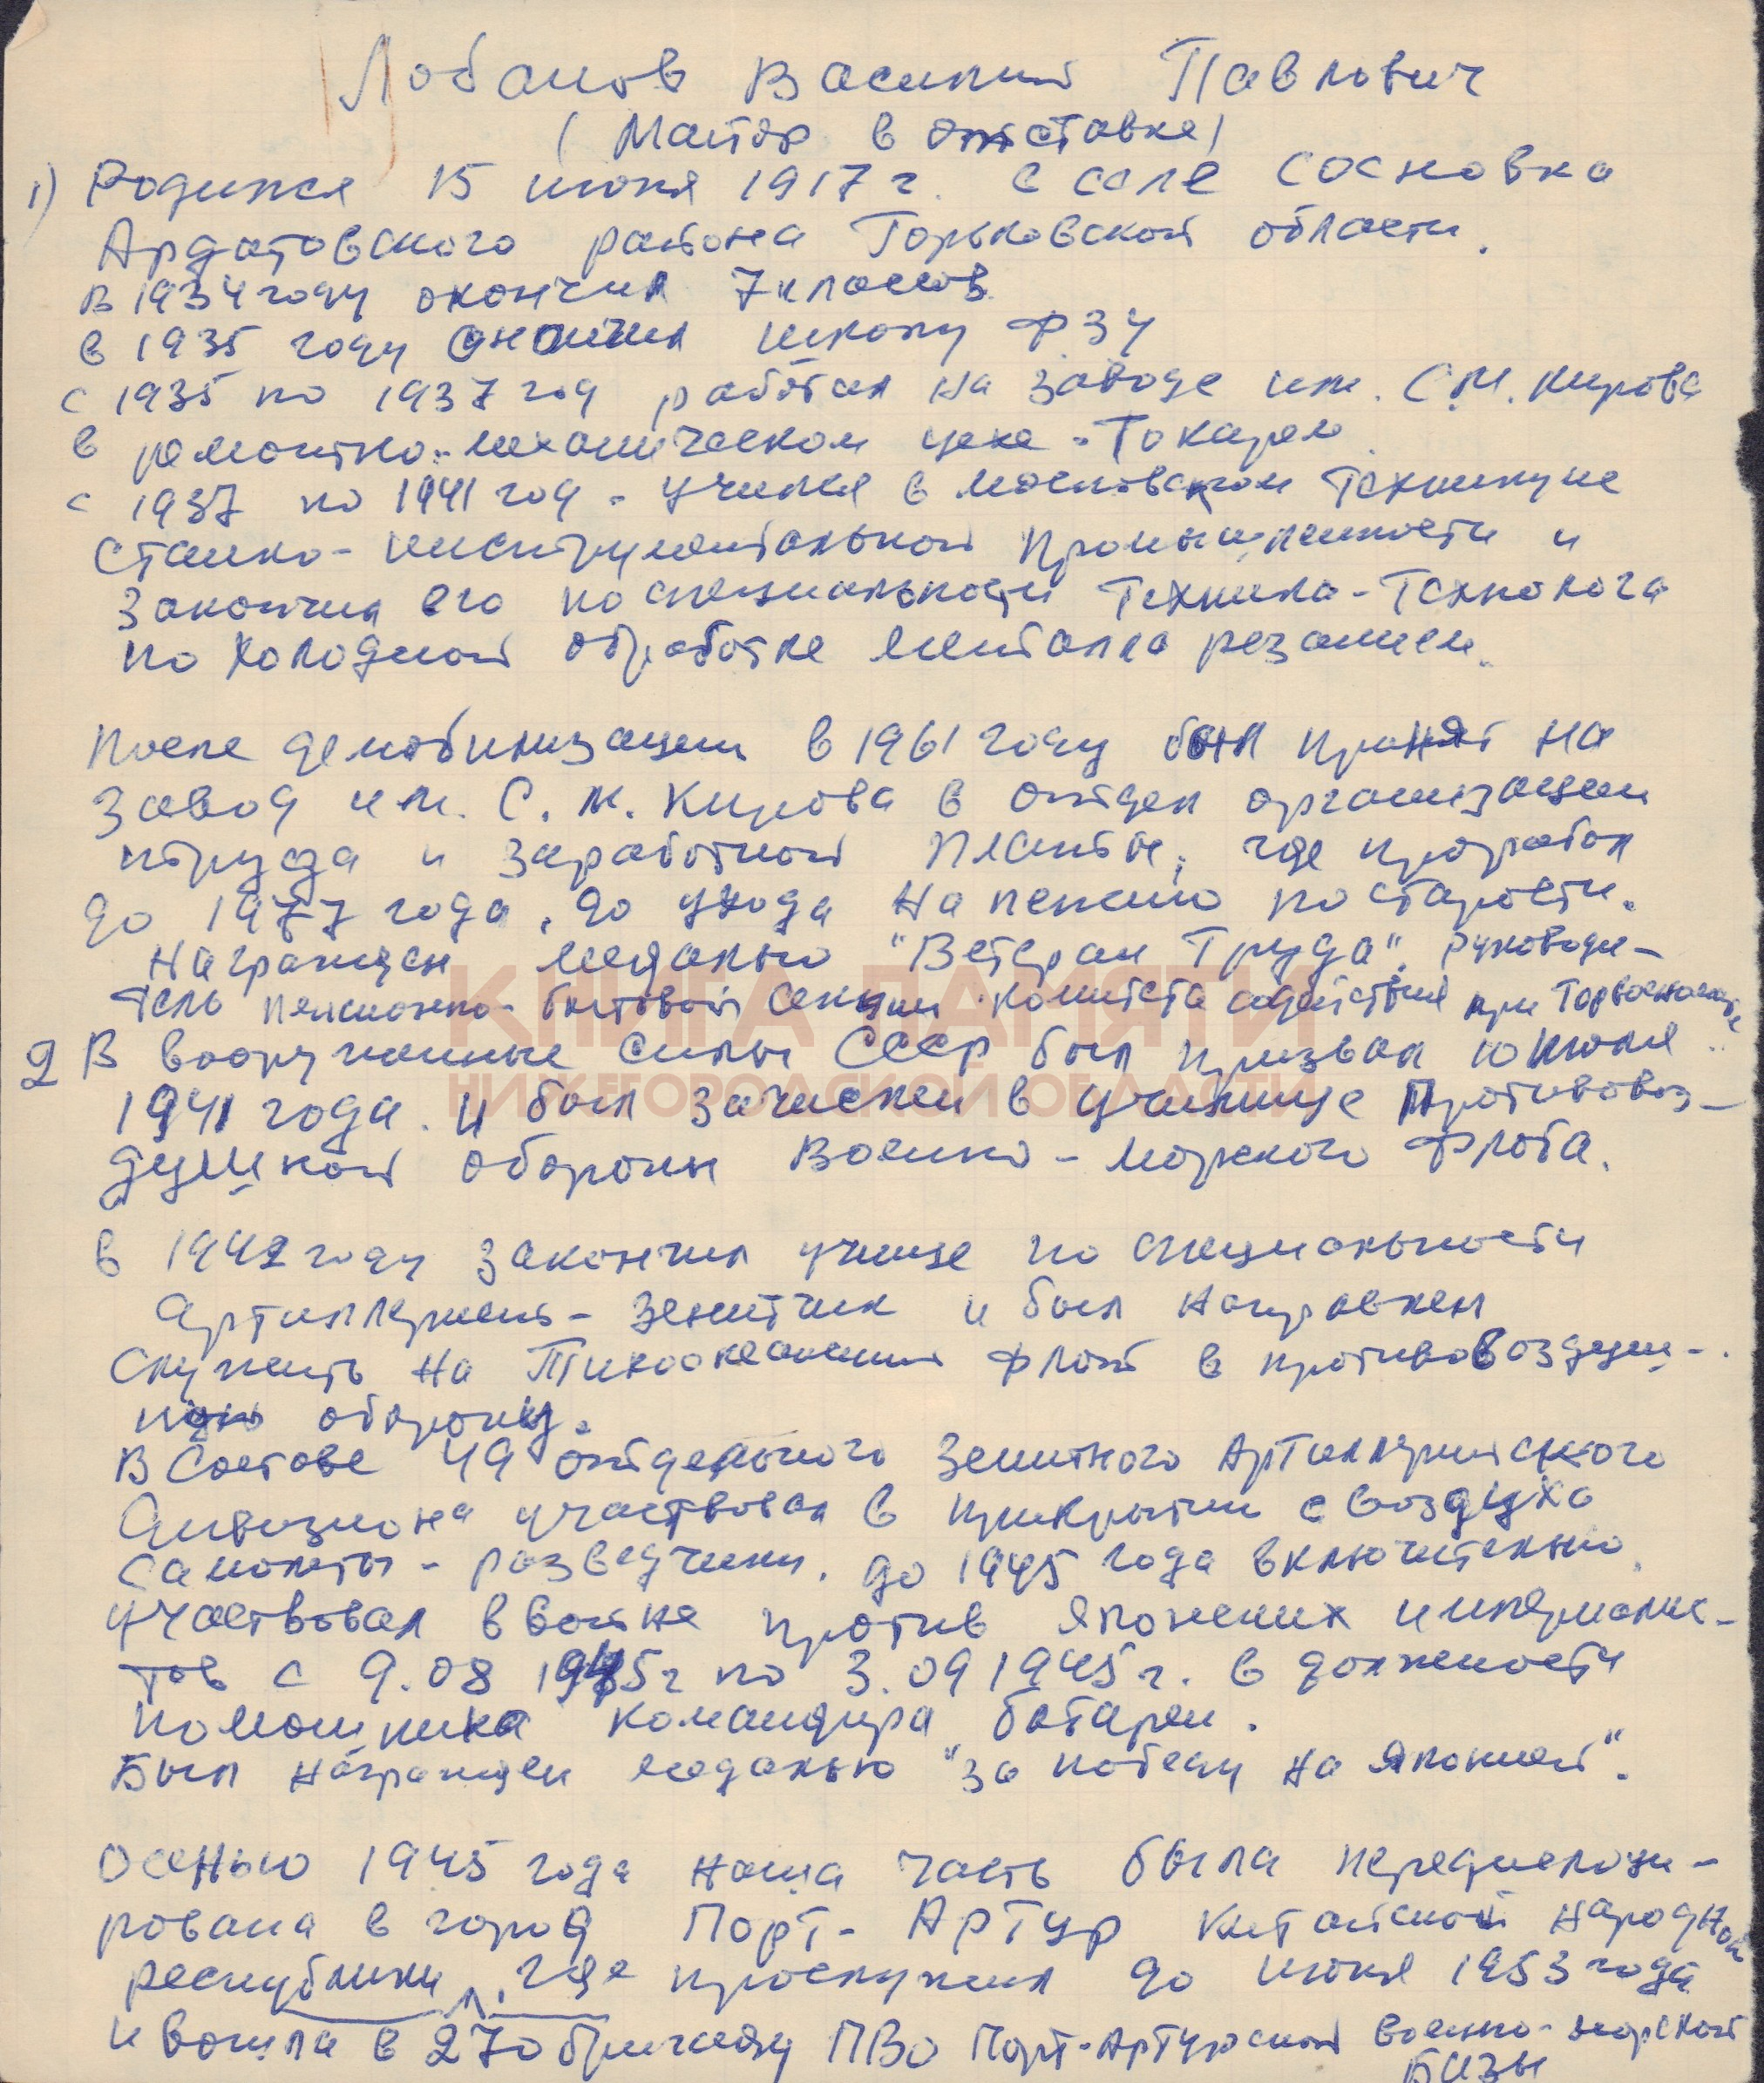 Лобанов Василий Павлович
(Майор в отставке)
1) Родился 15 июня 1917 г. в селе Сосновка
Ардатовского района Горьковской области.
в 1934 году окончил 7 классов
в 1935 году окончил школу ФЗУ
с 1935 по 1937 год работал на заводе им. С.М. Кирова
в ремонтно-механическом цехе - Токарем
с 1937 по 1941 год - учился в московском Техникуме
Станко-инструментальной промышленности и
Закончил его по специальности Техника-Технолога
по холодной обработке металла резанием.
После демобилизации в 1961 году был принят на
Завод им. С. М. Кирова в отдел организации
труда и заработной платы, где проработал
до 1977 года, до ухода на пенсию по старости.
Награжден медалью "Ветеран Труда". Руководи-
тель пенсионно-бытовой секции комитета содействия при
2 В вооруженные силы СССР был призван июля
1941 года. И был зачислен в училище Противовоз-
душной обороны Военно-Морского Флота.
в 1942 году закончил учище по специальности
Артиллерист-Зенитчик и был направлен
Служить на Тихоокеанский флот в противовоздуш-
ную оборону.
В Составе 49 отдельного Зенитного Артиллерийского
Дивизиона участвовал в прикрытии с воздуха
самолеты-разведчики. до 1945 года включительно.
Участвовал в войне против японских империалис-
тов с 9.08 1945г по 3.09 1945 г. в должности
помощника командира батареи.
Был награжден медалью "за победу на Японией".
Осенью 1945 года наша часть была передислоци-
рована в город Порт-Артур Китайской народной
республики, где прослужил до июня 1953 года
и вошла в 270 бригаду ПВО Порт-Артурской военно-морской
базы
КНИГА ПАМЯТИ
НИЖЕГОРОДСКОЙ ОБЛАСТИ